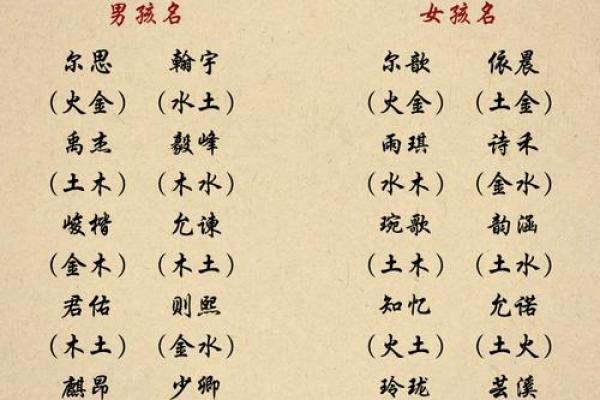 男孩名 女孩名
尔思 翰宇 尔歆 依晨
（火金） （水土） （火金） （土金）
禹杰 毅峰 雨琪 诗禾
（土木） （木水） （水木） （金水）
峻楷 允谏 琬歌 韵涵
（金木） （木土） （土木） （土水）
君佑 则熙 知忆 允诺
（木土） （金水） （火土） （土火）
麒昂 少卿 玲珑 芸溪